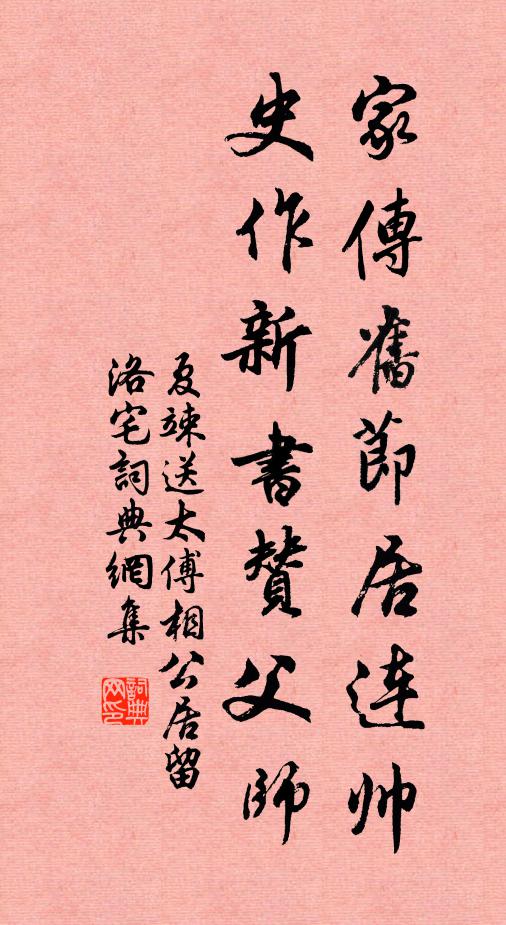 家傳舊節居连帅
史作新書賛父師
夏竦送太傅相公居留
洛宅詞典網集
詞典网印